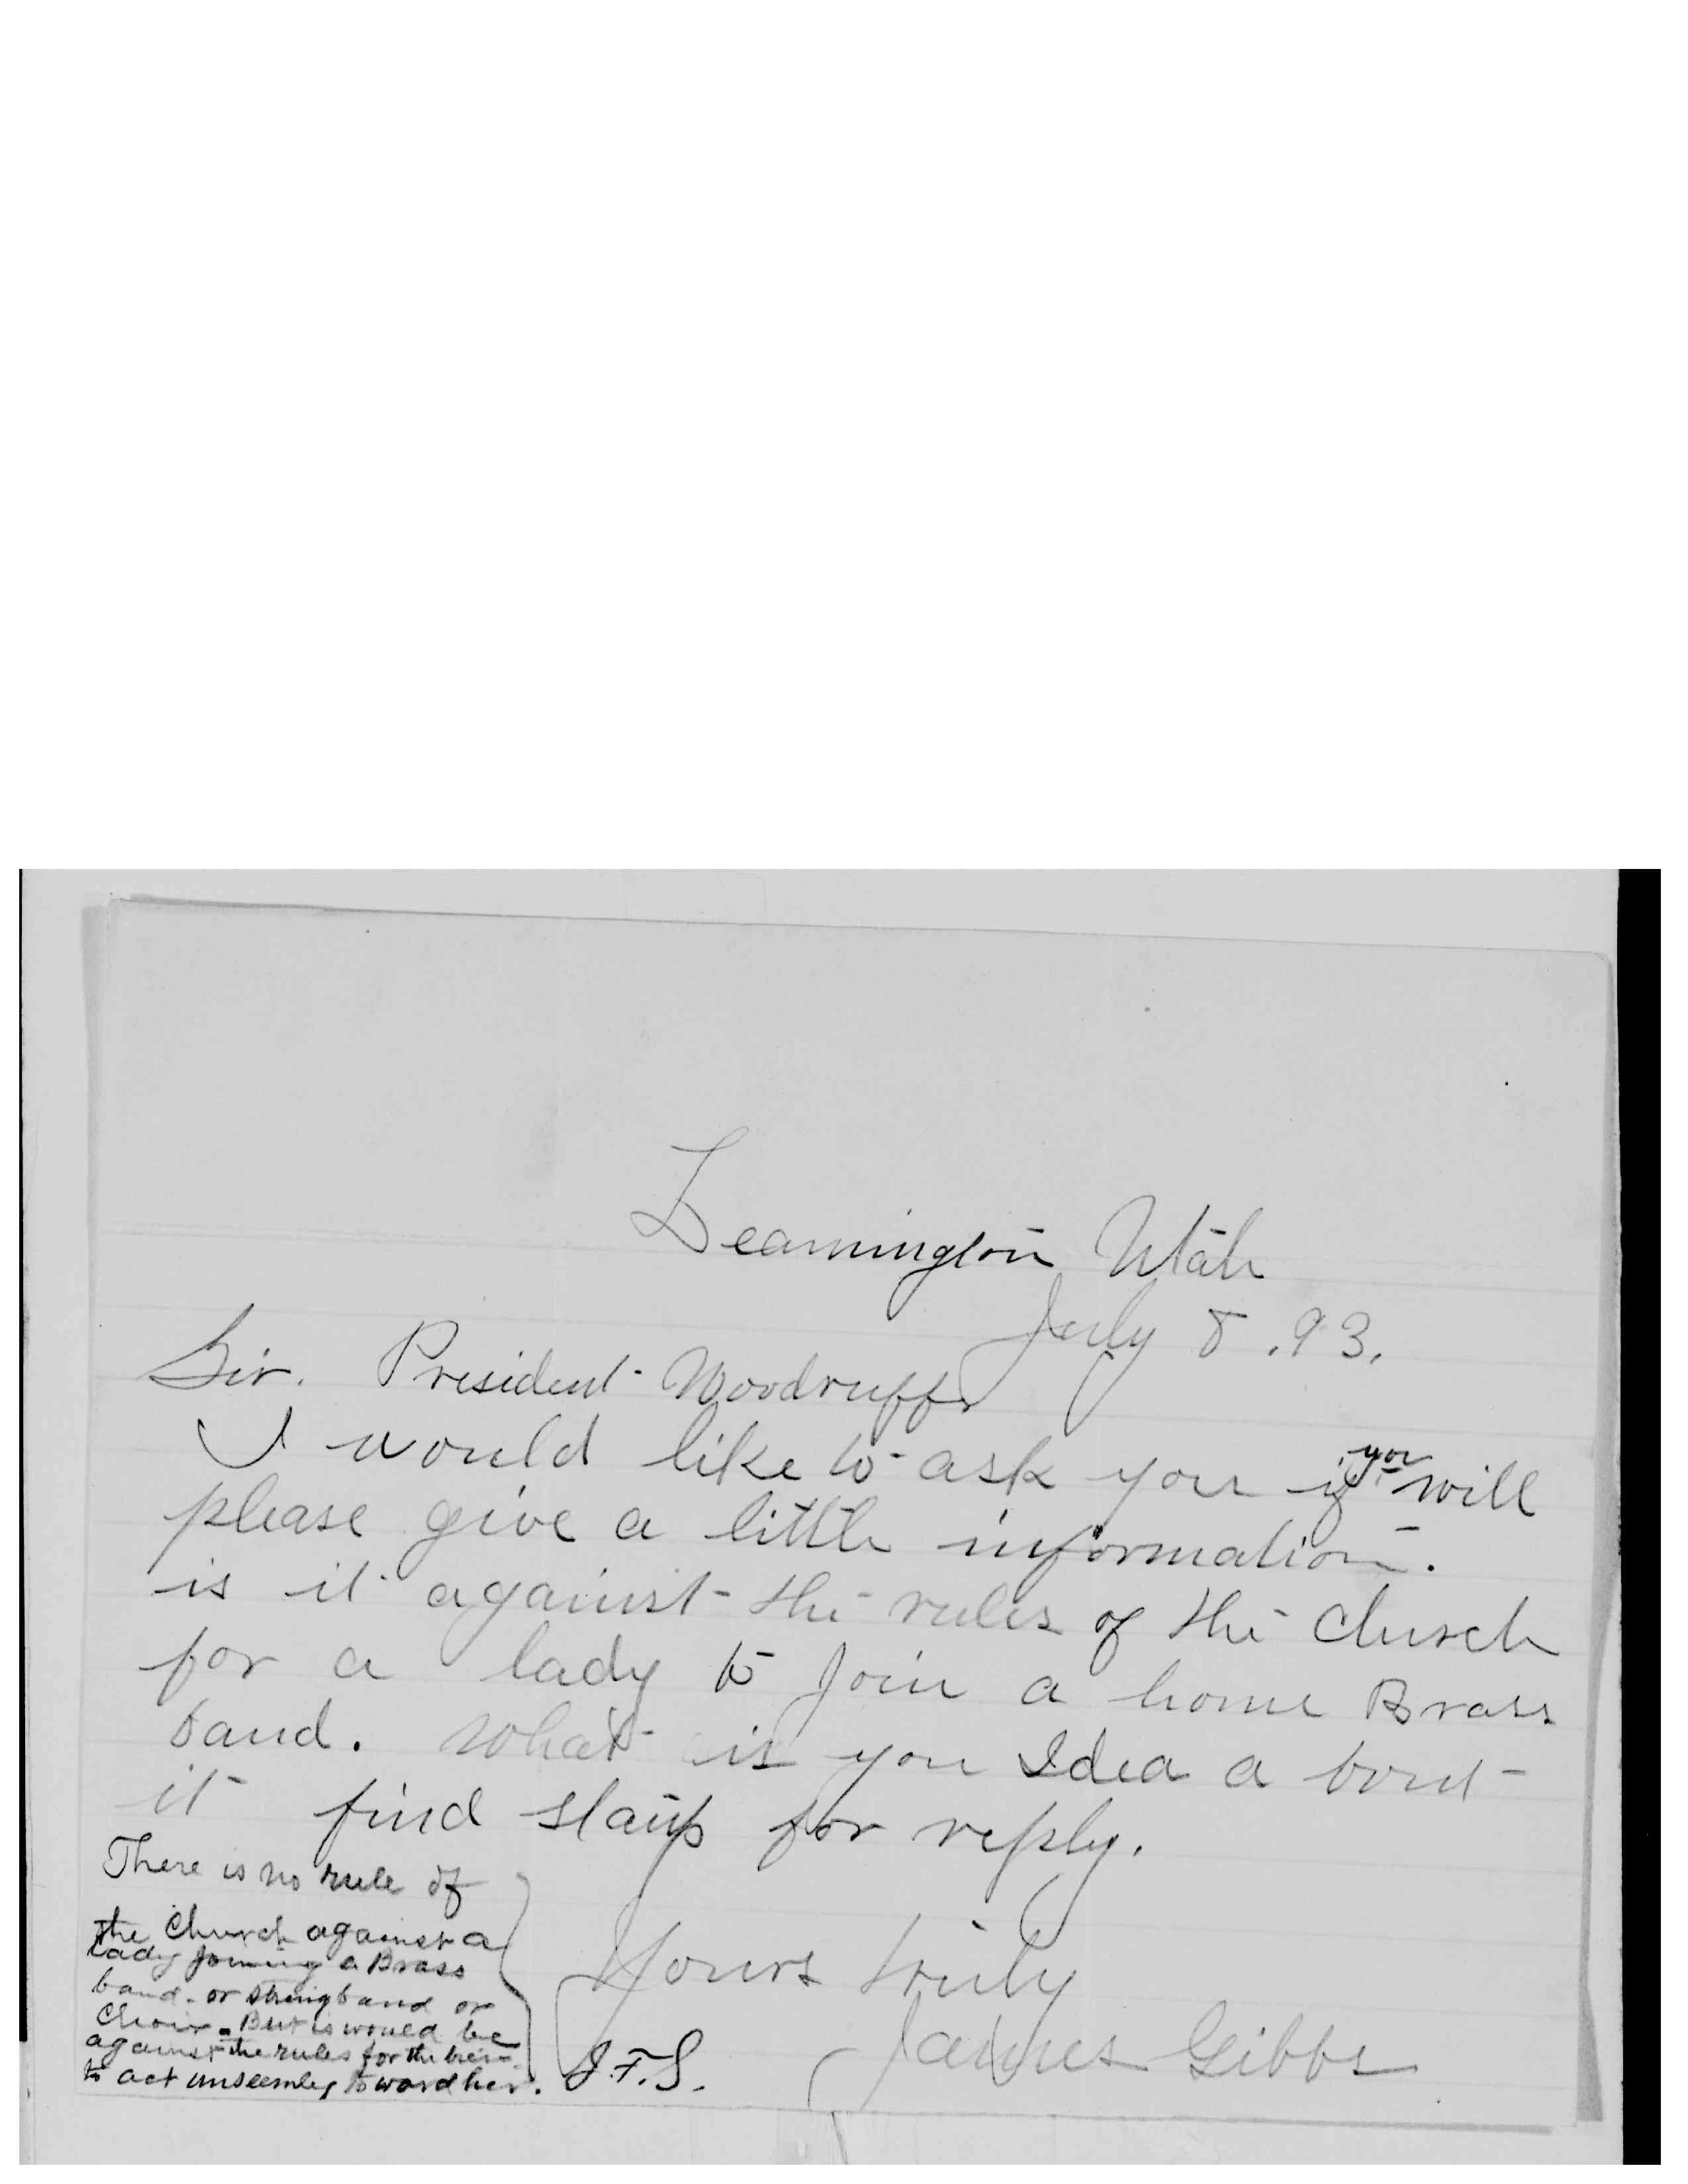 Leamington Utah
July 8, 93.
Sir. President Woodruff
I would like to ask you if you will
please give a little information.
is it against the rules of the Church
for a lady to Join a home Brass
band. What is you Idea a bout
it find stamp for reply.
Yours truly
James Gibbs
There is no rule of
the Church against a
lady joining a Brass
band - or string band or
Choir - But it would be
against the rules for the
to act unseemly toward her.
J.F.S.